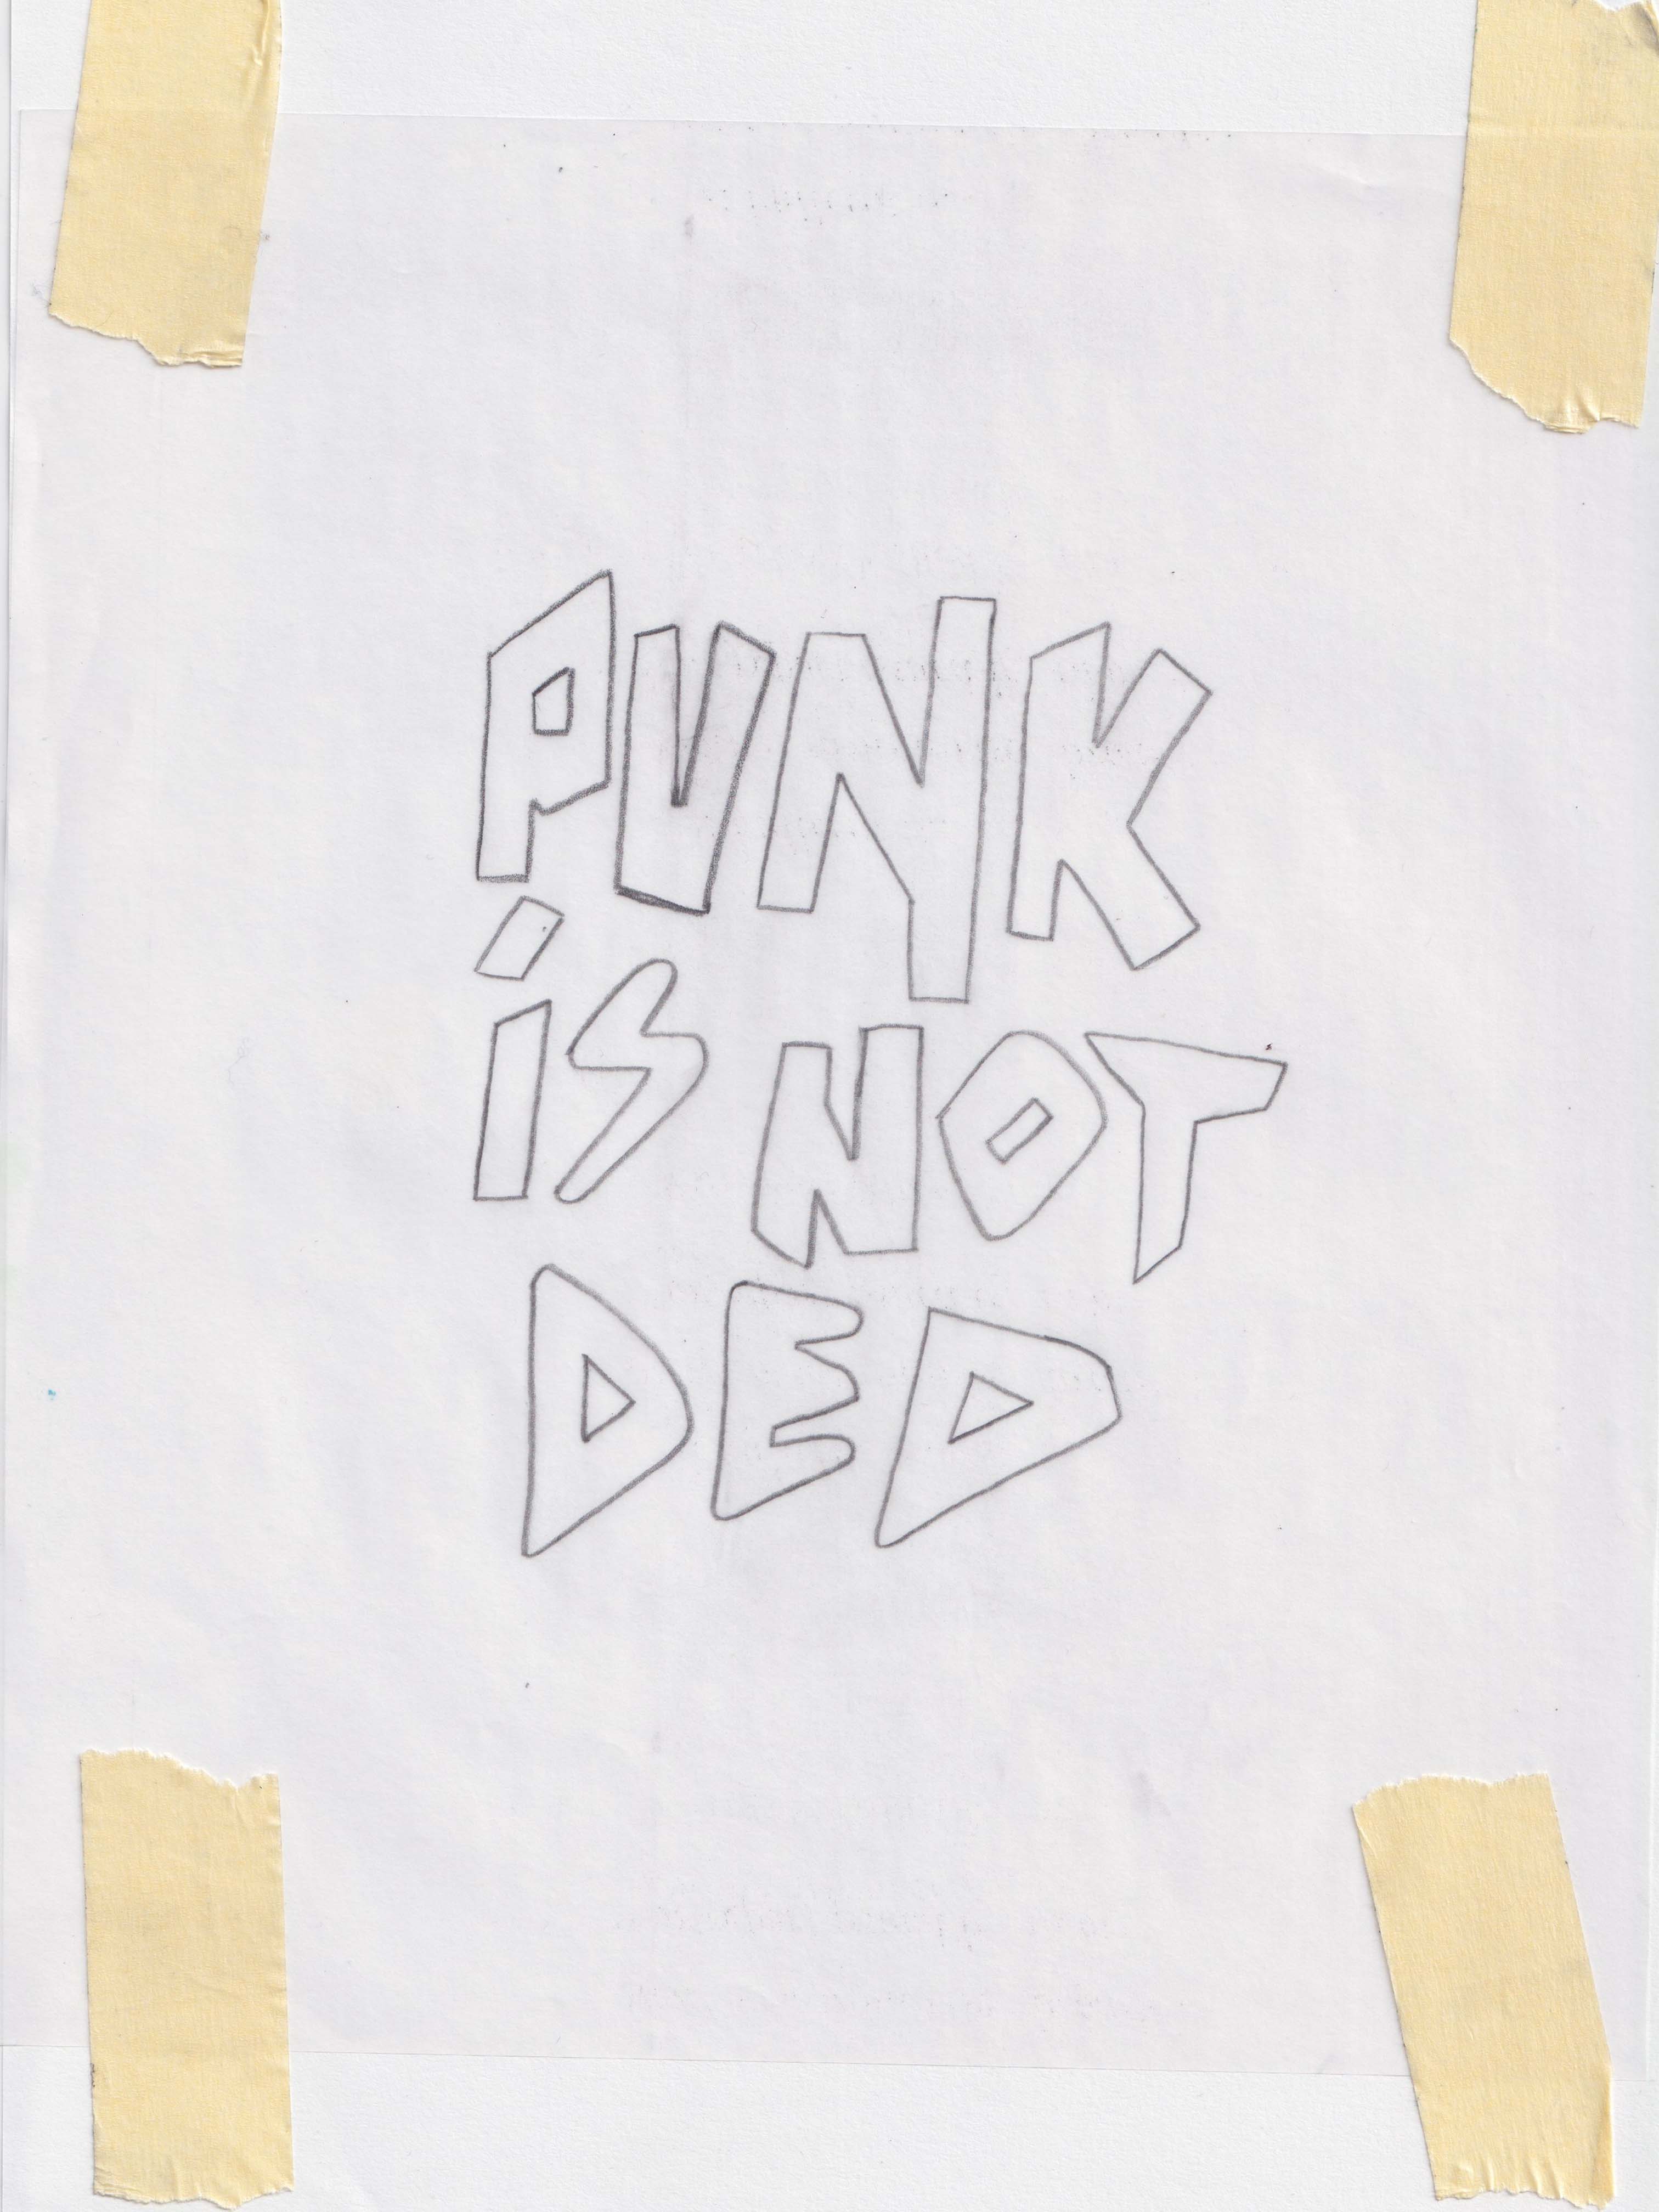 PUNK
iS NOT
DED